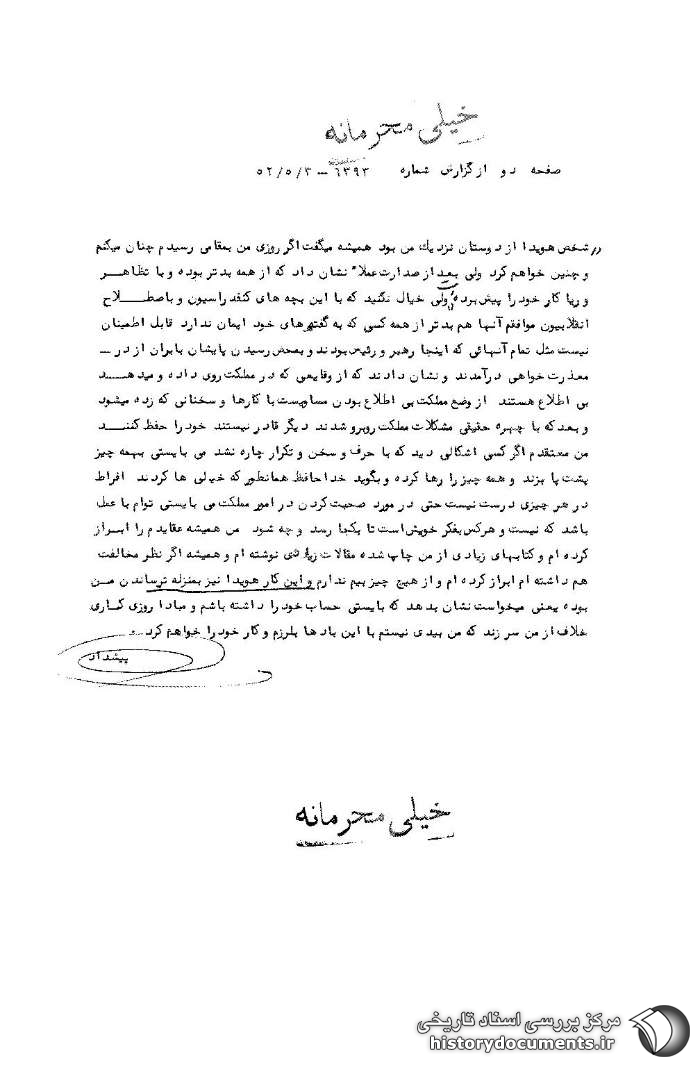 خیلی محرمانه
صفحه دو از گزارش شماره ۶۳۹۳ – ۵۲/۵/۳
"شخص هویدا از دوستان نزدیک من بود همیشه میگفت اگر روزی من بمقامی رسیدم چنان میکنم
و چنین خواهم کرد ولی بعد از صدارت عملاً نشان داد که از همه بدتر بوده و با تظاهر
و ریا کار خود را پیش برده ولی خیال نکنید که با این بچه های کنفدراسیون و باصطلاح
انقلابیون موافقم آنها هم بدتر از همه کسی که به گفته‌های خود ایمان ندارد قابل اطمینان
نیست مثل تمام آنهائی که اینجا رهبر و رئیس بودند و بمحض رسیدن پایشان بایران از در
معذرت خواهی درآمدند و نشان دادند که از وقایعی که در مملکت روی داده و میدهد
بی اطلاع هستند از وضع مملکت بی اطلاع بودن مساویست با کارها و سخنانی که زده میشود
و بعد که با چهره حقیقی مشکلات مملکت روبرو شدند دیگر قادر نیستند خود را حفظ کنند
من معتقدم اگر کسی اشکالی دید که با حرف و سخن و تکرار چاره نشد می بایستی بهمه چیز
پشت پا بزند و همه چیز را رها کرده و بگوید خدا حافظ همانطور که خیلی ها کردند افراط
در هر چیزی درست نیست حتی در مورد صحبت کردن در امور مملکت می بایستی توام با عمل
باشد که نیست و هرکس بفکر خویش است تا بکجا رسد و چه شود من همیشه عقایدم را ابراز
کرده ام و کتابهای زیادی از من چاپ شده مقالات زیادی نوشته ام و همیشه اگر نظر مخالفت
هم داشته ام ابراز کرده ام و از هیچ چیز بیم ندارم و این کار هویدا نیز بمنزله ترساندن من
بوده یعنی میخواست نشان بدهد که بایستی حساب خود را داشته باشم و مبادا روزی کاری
خلاف از من سر زند که من بیدی نیستم با این بادها بلرزم و کار خود را خواهم کرد
پیشداد
خیلی محرمانه
مرکز بررسی اسناد تاریخی
historydocuments.ir